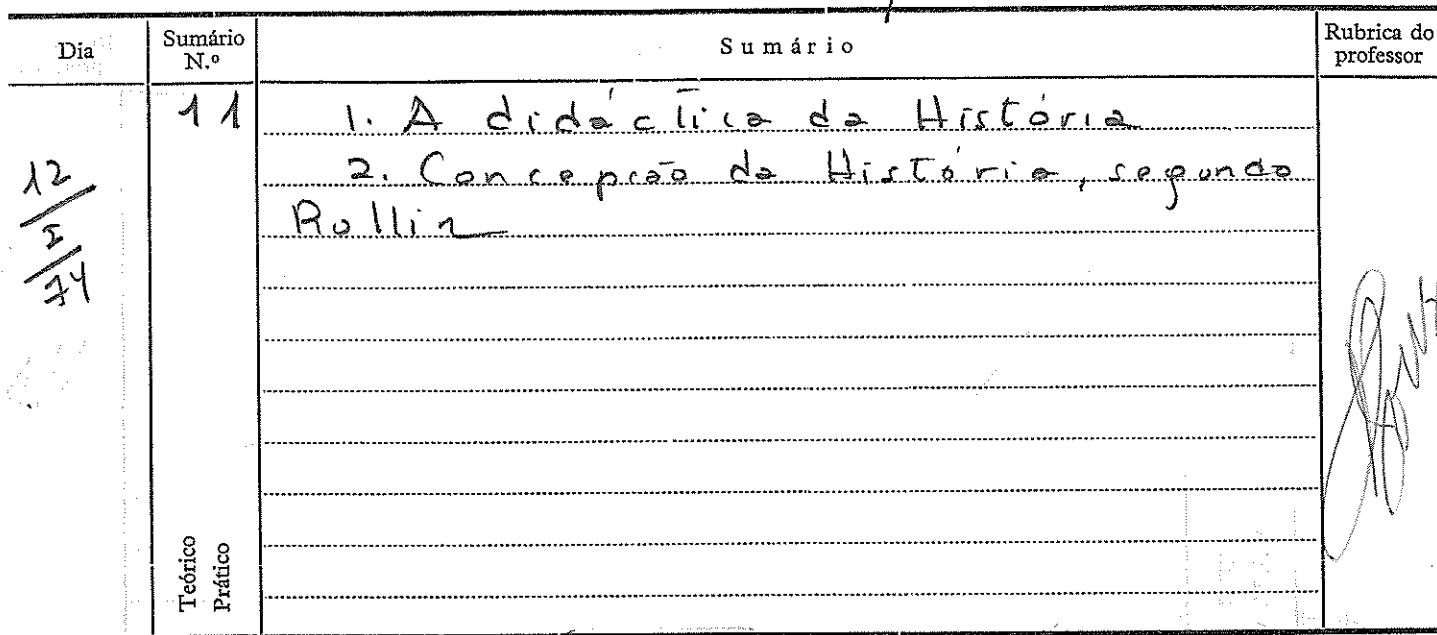 Dia
Sumário
N.º
Sumário
Rubrica do
professor
12
I
74
11
1. A didáctica da História
2. Concepção da História, segundo
Rollin
Teórico
Prático